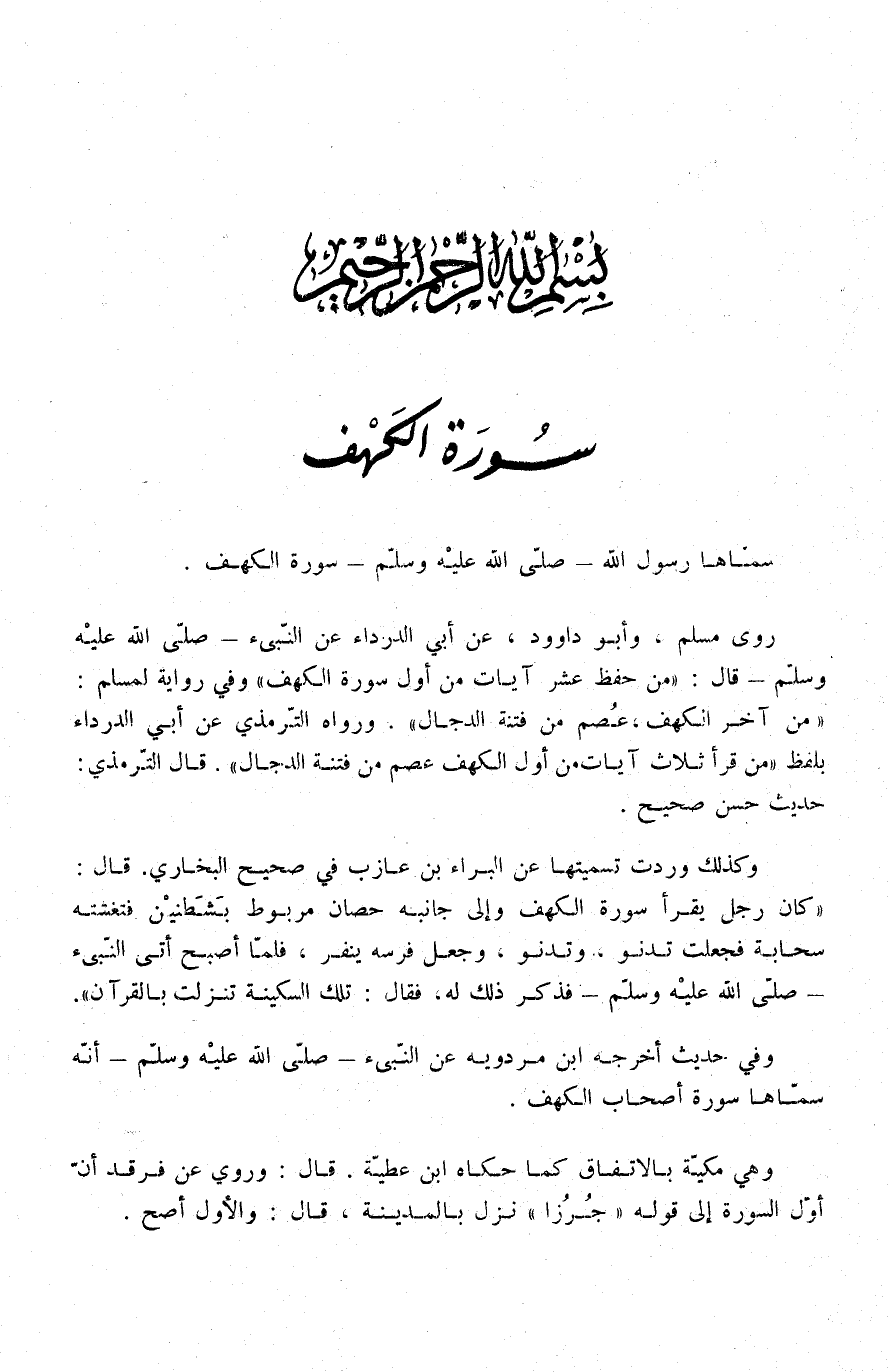 بِسْمِ اللّٰهِ الرَّحْمٰنِ الرَّحِيمِ
سُورَة الكَهْف
سمّاها رسول الله – صلّى الله عليْه وسلّم – سورة الكهف .
روى مسلم ، وأبو داوود ، عن أبي الدرداء عن النّبىء – صلّى الله عليْه
وسلّم – قال : «من حفظ عشر آيات من أول سورة الكهف» وفي رواية لمسلم :
«من آخر الكهف ، عُصم من فتنة الدجال» . ورواه التّرمذي عن أبي الدرداء
بلفظ «من قرأ ثلاث آيات من أول الكهف عصم من فتنة الدجال» . قال التّرمذي :
حديث حسن صحيح .
وكذلك وردت تسميتها عن البراء بن عازب في صحيح البخاري . قال :
«كان رجل يقرأ سورة الكهف وإلى جانبه حصان مربوط بشَطَنيْن فتغشته
سحابة فجعلت تدنو ، وتدنو ، وجعل فرسه ينفر ، فلمّا أصبح أتى النّبىء
– صلّى الله عليْه وسلّم – فذكر ذلك له، فقال : تلك السكينة تنزلت بالقرآن».
وفي حديث أخرجه ابن مردويه عن النّبىء – صلّى الله عليْه وسلّم – أنّه
سمّاها سورة أصحاب الكهف .
وهي مكيّة بالاتفاق كما حكاه ابن عطيّة . قال : وروي عن فرقد أنّ
أوّل السورة إلى قوله « جُرُزا » نزل بالمدينة ، قال : والأول أصح .